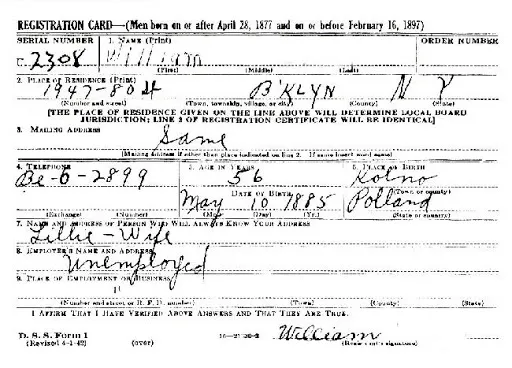 REGISTRATION CARD—(Men born on or after April 28, 1877 and on or before February 16, 1897)
SERIAL NUMBER 1. NAME (Print) ORDER NUMBER
U. 2308 William
(First) (Middle) (Last)
2. PLACE OF RESIDENCE (Print)
1947-80 st B'KLYN N Y
(Number and street) (Town, township, village, or city) (County) (State)
[THE PLACE OF RESIDENCE GIVEN ON THE LINE ABOVE WILL DETERMINE LOCAL BOARD
JURISDICTION; LINE 2 OF REGISTRATION CERTIFICATE WILL BE IDENTICAL]
3. MAILING ADDRESS
Same
[Mailing address if other than place indicated on line 2. If same insert word same]
4. TELEPHONE 5. AGE IN YEARS 6. PLACE OF BIRTH
Be-6-2899 56 Kolno
DATE OF BIRTH (Town or county)
May 10 1885 Polland
(Exchange) (Number) (Mo.) (Day) (Yr.) (State or country)
7. NAME AND ADDRESS OF PERSON WHO WILL ALWAYS KNOW YOUR ADDRESS
Lillie - Wife
8. EMPLOYER'S NAME AND ADDRESS
Unemployed
9. PLACE OF EMPLOYMENT OR BUSINESS
"
(Number and street or R. F. D. number) (Town) (County) (State)
I AFFIRM THAT I HAVE VERIFIED ABOVE ANSWERS AND THAT THEY ARE TRUE.
D. S. S. Form 1 William
(Revised 4-1-42) (over) (Registrant's signature)